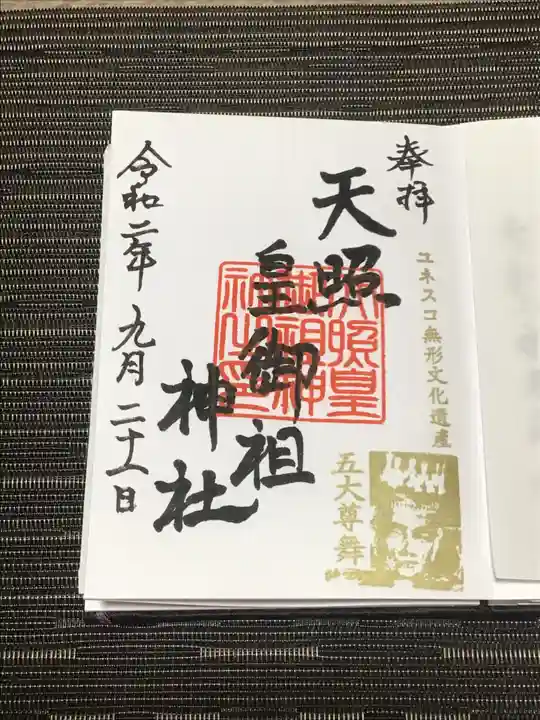 奉拝
ユネスコ無形文化遺産
五大尊舞
天照
皇御祖
神社
天照皇
御祖神
社之印
令和二年九月二十一日